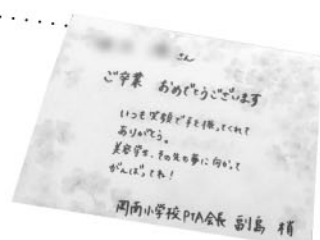 さん
ご卒業 おめでとうございます
いつも笑顔で手を振ってくれて
ありがとう。
美容学生、その先も夢に向かって
がんばってね!
岡南小学校PTA会長 副島 梢